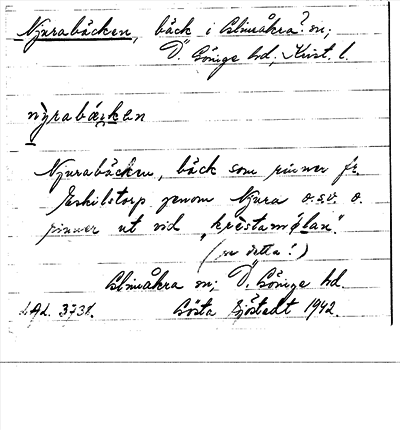 Njurabäcken, bäck i Glimåkra? sn;
Ö. Göinge hd, Krist. l.
nyrabäkan
Njurabäcken, bäck som rinner fr.
Eskilstorp genom Njura o.s.v. o.
rinner ut vid „krestamølan".
(se detta!)
Glimåkra sn; Ö. Göinge hd.
LAL. 3731. Gösta Sjöstedt 1942.